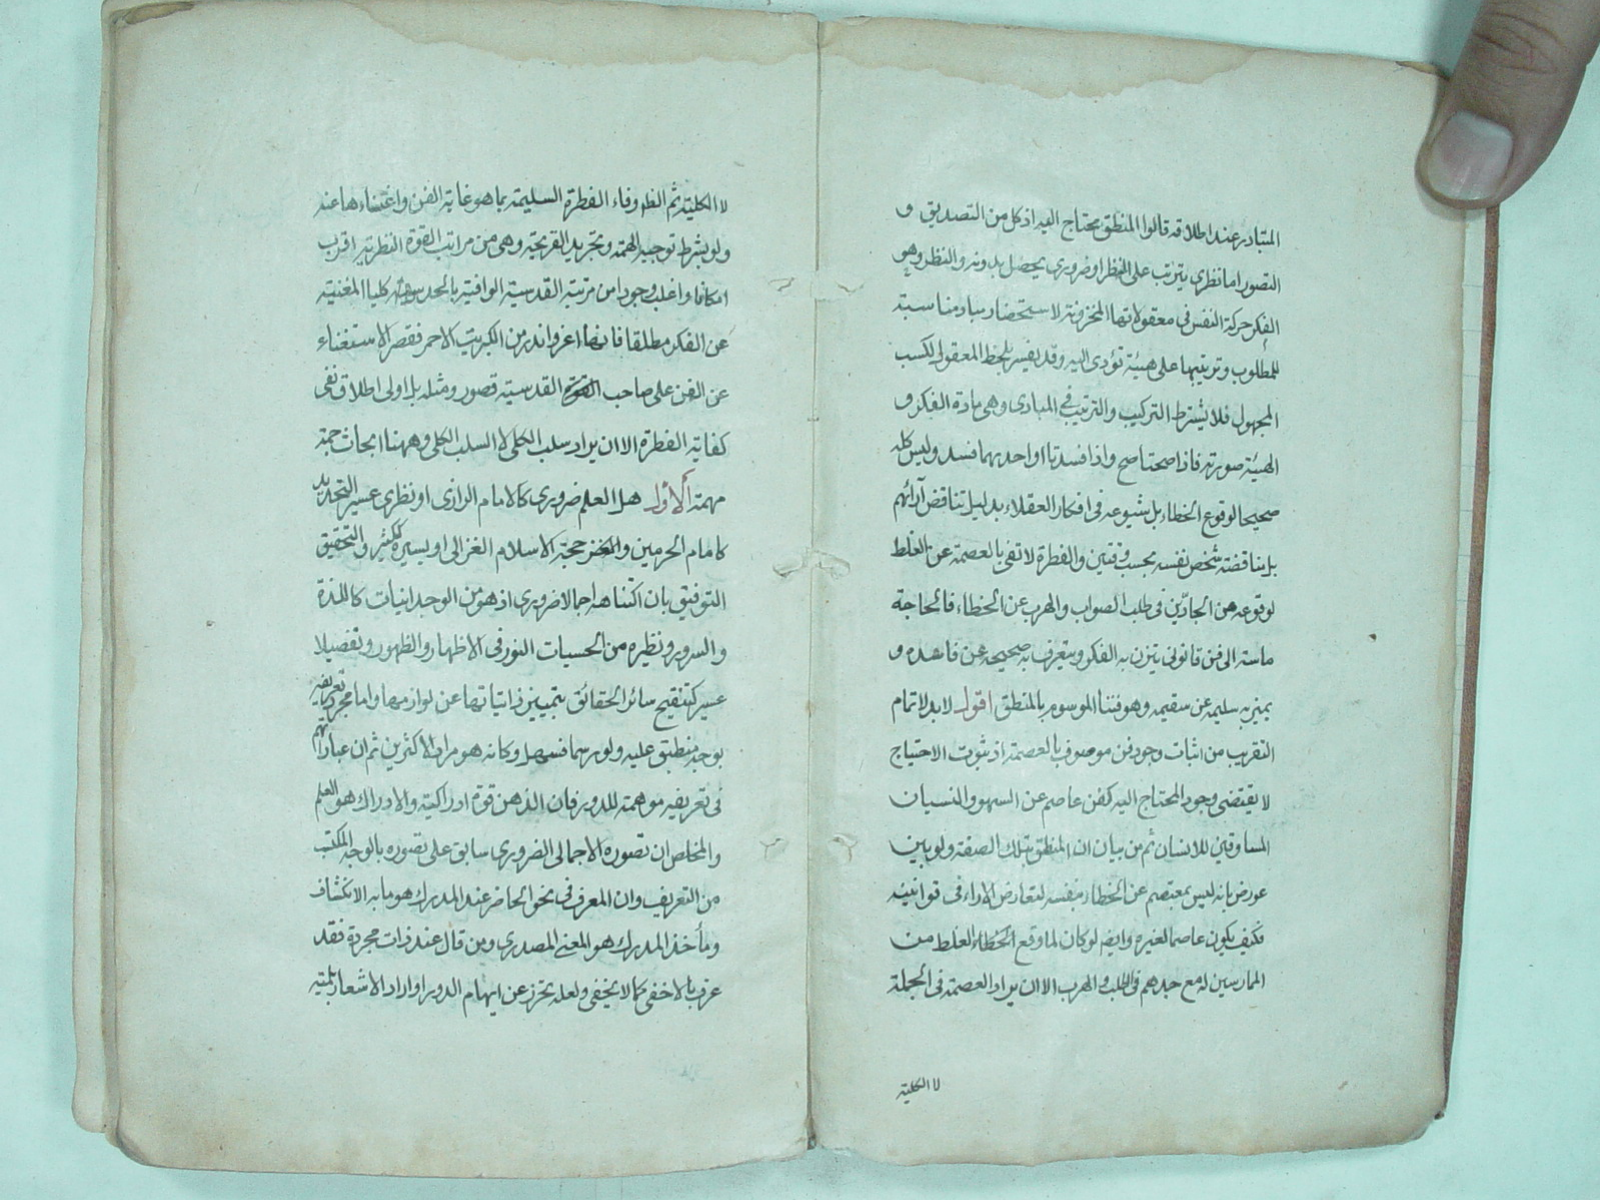 المتبادر عند اطلاقه قالوا المنطق محتاج اليه اذ كل من التصديق و
التصور اما نظرى يترتب على النظر او ضرورى يحصل بدونه والنظر وهو
الفكر حركة النفس فى معقولاتها المخزونة لاستحضار مباد مناسبة
للمطلوب وترتيبها على هيئة تؤدى اليه وقد يفسر بلحظ المعقول لكسب
المجهول فلا يشترط التركيب والترتيب فى المبادى وهى مادة الفكر و
الهيئة صورته فاذا صحتا صح واذا فسدتا او احديهما فسد وليس كله
صحيحا لوقوع الخطاء بل شيوعه فى افكار العقلاء بدليل تناقض آرائهم
بل مناقضة شخص نفسه بحسب وقتين والفطرة لا تفى بالعصمة عن الغلط
لوقوعه من الجادّين فى طلب الصواب والهرب عن الخطاء فالحاجة
ماسة الى فن قانونى يتزن به الفكر ويتعرف به صحيحه عن فاسده و
يميز به سليمه عن سقيمه وهو فننا الموسوم بالمنطق اقول لا بد لاتمام
التقريب من اثبات وجود فن موصوف بالعصمة اذ ثبوت الاحتياج
لا يقتضى وجود المحتاج اليه كفن عاصم عن السهو والنسيان
المساوقين للانسان ثم من بيان ان المنطق بتلك الصفة ولو بين
عورض بانه ليس بمعتصم عن الخطاء بنفسه لتعارض الاراء فى قوانينه
فكيف يكون عاصما لغيره وايضم لو كان لما وقع الخطاء الغلط من
الممارسين له مع جدهم فى الطلب والهرب الا ان يراد العصمة فى الجملة
لا الكلية
لا الكلية ثم الظ وفاء الفطرة السليمة بما هو غاية الفن واغتناءها عنه
ولو بشرط توجيه الهمة وتجريد القريحة وهى من مراتب القوة النظرية اقرب
امكانا واغلب وجودا من مرتبة القدسية الوافية بالحدس كليا المغنية
عن الفكر مطلقا فانها اعز واندر من الكبريت الاحمر فقصر الاستغناء
عن الفن على صاحب القوة القدسية قصور ومثله بل اولى اطلاق نفى
كفاية الفطرة الا ان يراد سلب الكلى لا السلب الكلى وههنا ابحاث جمة
مهمة الاول هل العلم ضرورى كالامام الرازى او نظرى عسير التحديد
كامام الحرمين حجة الاسلام الغزالى او يسيره ككثير والتحقيق
التوفيق بان اكتناهه اجمالا ضرورى اذ هو من الوجدانيات كاللذة
والسرور ونظيره من الحسيات النور فى الاظهار والظهور وتفصيلا
عسير كتنقيح سائر الحقائق بتمييز ذاتياتها عن لوازمها واما مجرد تعريفه
بوجه منطبق عليه ولو رسما فسهل وكانه هو مراد الاكثرين ثم ان عباراتهم
فى تعريفه موهمة للدور فان الذهن قوة ادراكية والادراك هو العلم
والمخلص ان تصوره الاجمالى الضرورى سابق على تصوره بالوجه المكتسب
من التعريف وان المعرف فى نحو الحاضر عند المدرك هو ما به الانكشاف
ومأخذ المدرك هو المعنى المصدرى ومن قال عند ذات مجردة فقد
عرف بالاخفى كما لا يخفى ولعله تحرز عن ايهام الدور او اراد الاشعار بلمية